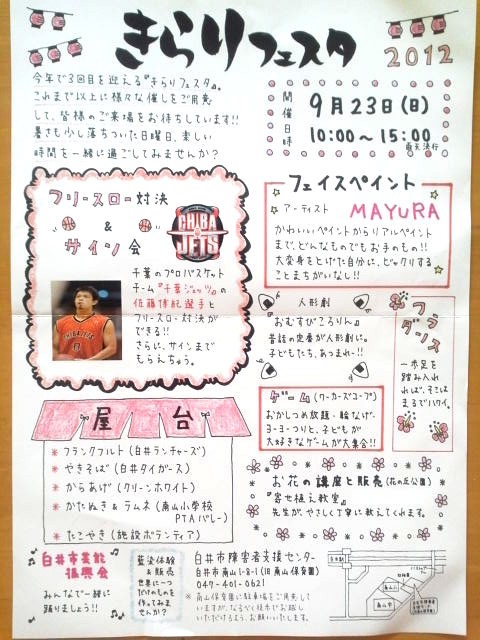 きらりフェスタ
2012
今年で3回目を迎える『きらりフェスタ』。
これまで以上に様々な催しをご用意
して、皆様のご来場をお待ちしています!!
暑さも少し落ちついた日曜日、楽しい
時間を一緒に過ごしてみませんか?
開催日時
9月23日(日)
10:00〜15:00
雨天決行
フリースロー対決
&
サイン会
CHIBA
JETS
千葉のプロバスケット
チーム『千葉ジェッツ』の
佐藤博紀選手と
フリースロー対決が
できる!!
さらに、サインまで
もらえちゃう。
フェイスペイント
アーティスト MAYURA
かわいいペイントからリアルペイント
まで、どんなものでもお手のもの!!
大変身をとげた自分に、ビックリする
ことまちがいなし!!
人形劇
『おむすびころりん』
昔話の定番が人形劇に。
子どもたち、あつまれー!!
フラダンス
一歩足を
踏み入れ
れば、そこは
まるでハワイ。
ゲーム(ワーカーズコープ)
おかしつめ放題・輪なげ・
ヨーヨーつりと、子どもが
大好きなゲームが大集合!!
屋台
* フランクフルト(白井ランチャーズ)
* やきそば(白井タイガース)
* からあげ(クリーンホワイト)
* かたぬき&ラムネ(南山小学校
PTAバレー)
* たこやき(施設ボランティア)
お花の講座と販売(花の丘公園)
『寄せ植え教室』
先生が、やさしく丁寧に教えてくれます。
白井市芸能
振興会
みんなで一緒に
踊りましょう!!
藍染体験
&販売
世界に一つ
だけのものを
作ってみま
せんか?
白井市障害者支援センター
白井市南山1-8-1(旧南山保育園)
047-401-0621
※ 南山保育園に駐車場をご用意して
いますが、なるべく徒歩でお越し
いただけるよう、お願いいたします。